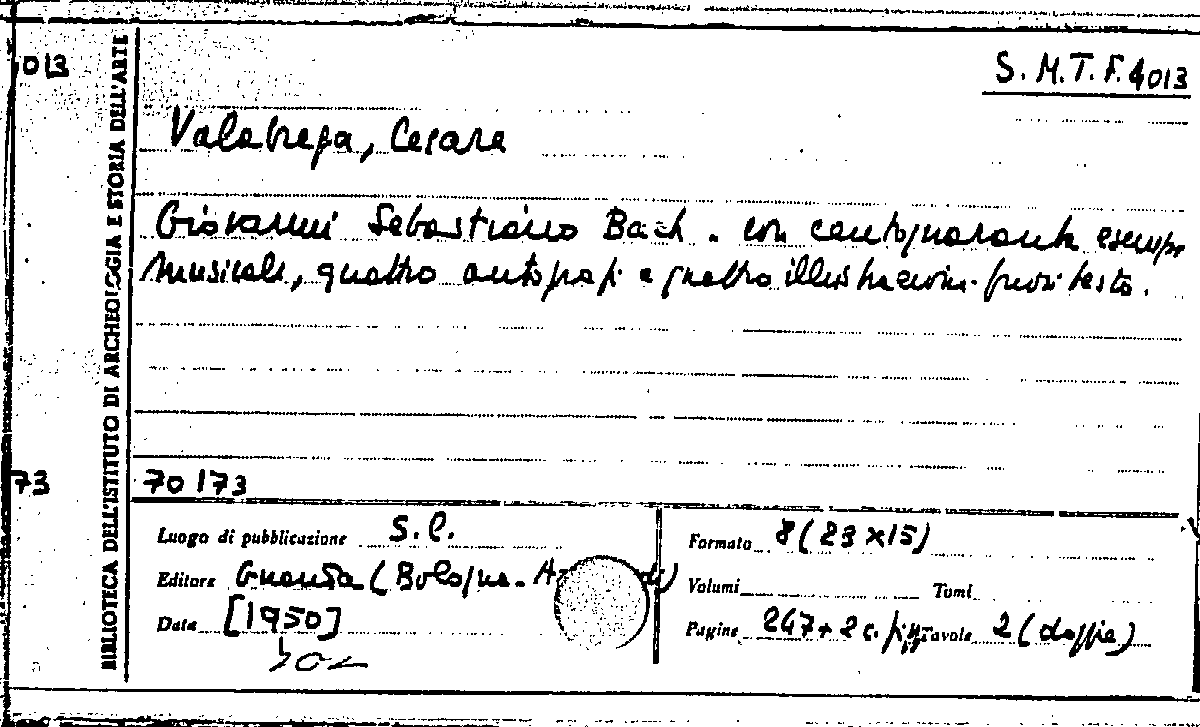 013
S.M.T.F.4013
BIBLIOTECA DELL'ISTITUTO DI ARCHEOLOGIA E STORIA DELL'ARTE
Valabrega, Cesare
Giovanni Sebastiano Bach. con centoquaranta esempi
musicali, quattro autografi e quattro illustrazioni fuori testo.
73
70173
Luogo di pubblicazione S.l.
Editore Guanda (Bologna.
Data [1950]
Formato 8 (23x15)
Volumi Tomi
Pagine 247+2 c. Tavole 2 (doppie)